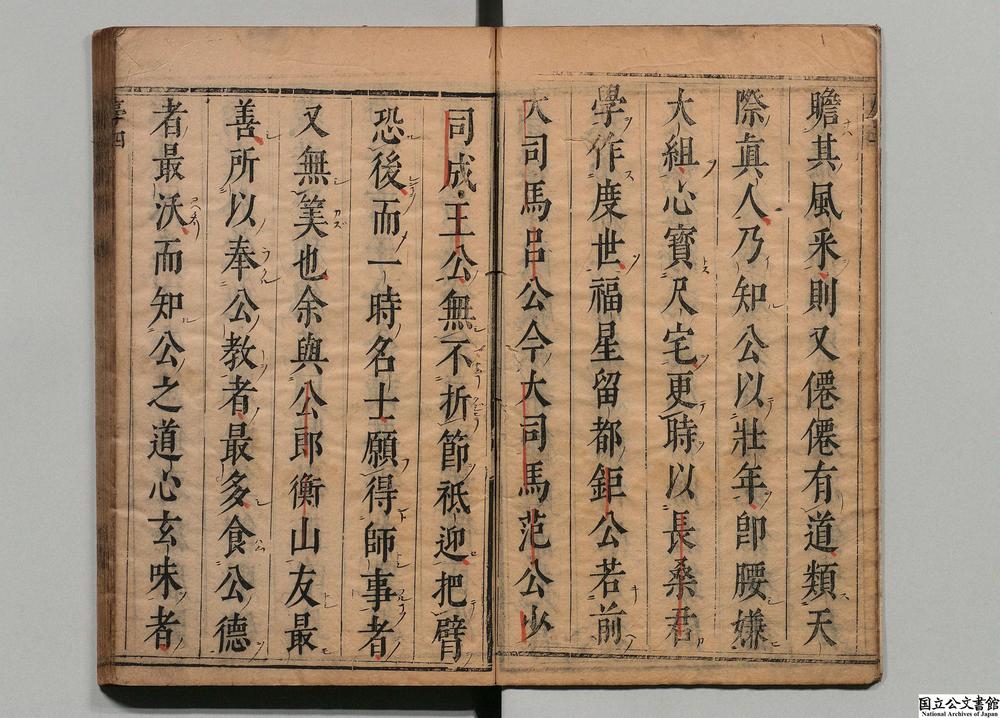 瞻其風釆則又僊僊有道類天
際眞人乃知公以壯年卽腰嫌
大組心寶尺宅更時以長桑君
學作度世福星留都鉅公若前
大司馬呂公今大司馬范公少
司成王公無不折節祗迎把臂
恐後而一時名士願得師事者
又無筭也余與公郎衡山友最
善所以奉公教者最多食公德
者最沃而知公之道心玄味者
序四
国立公文書館
National Archives of Japan